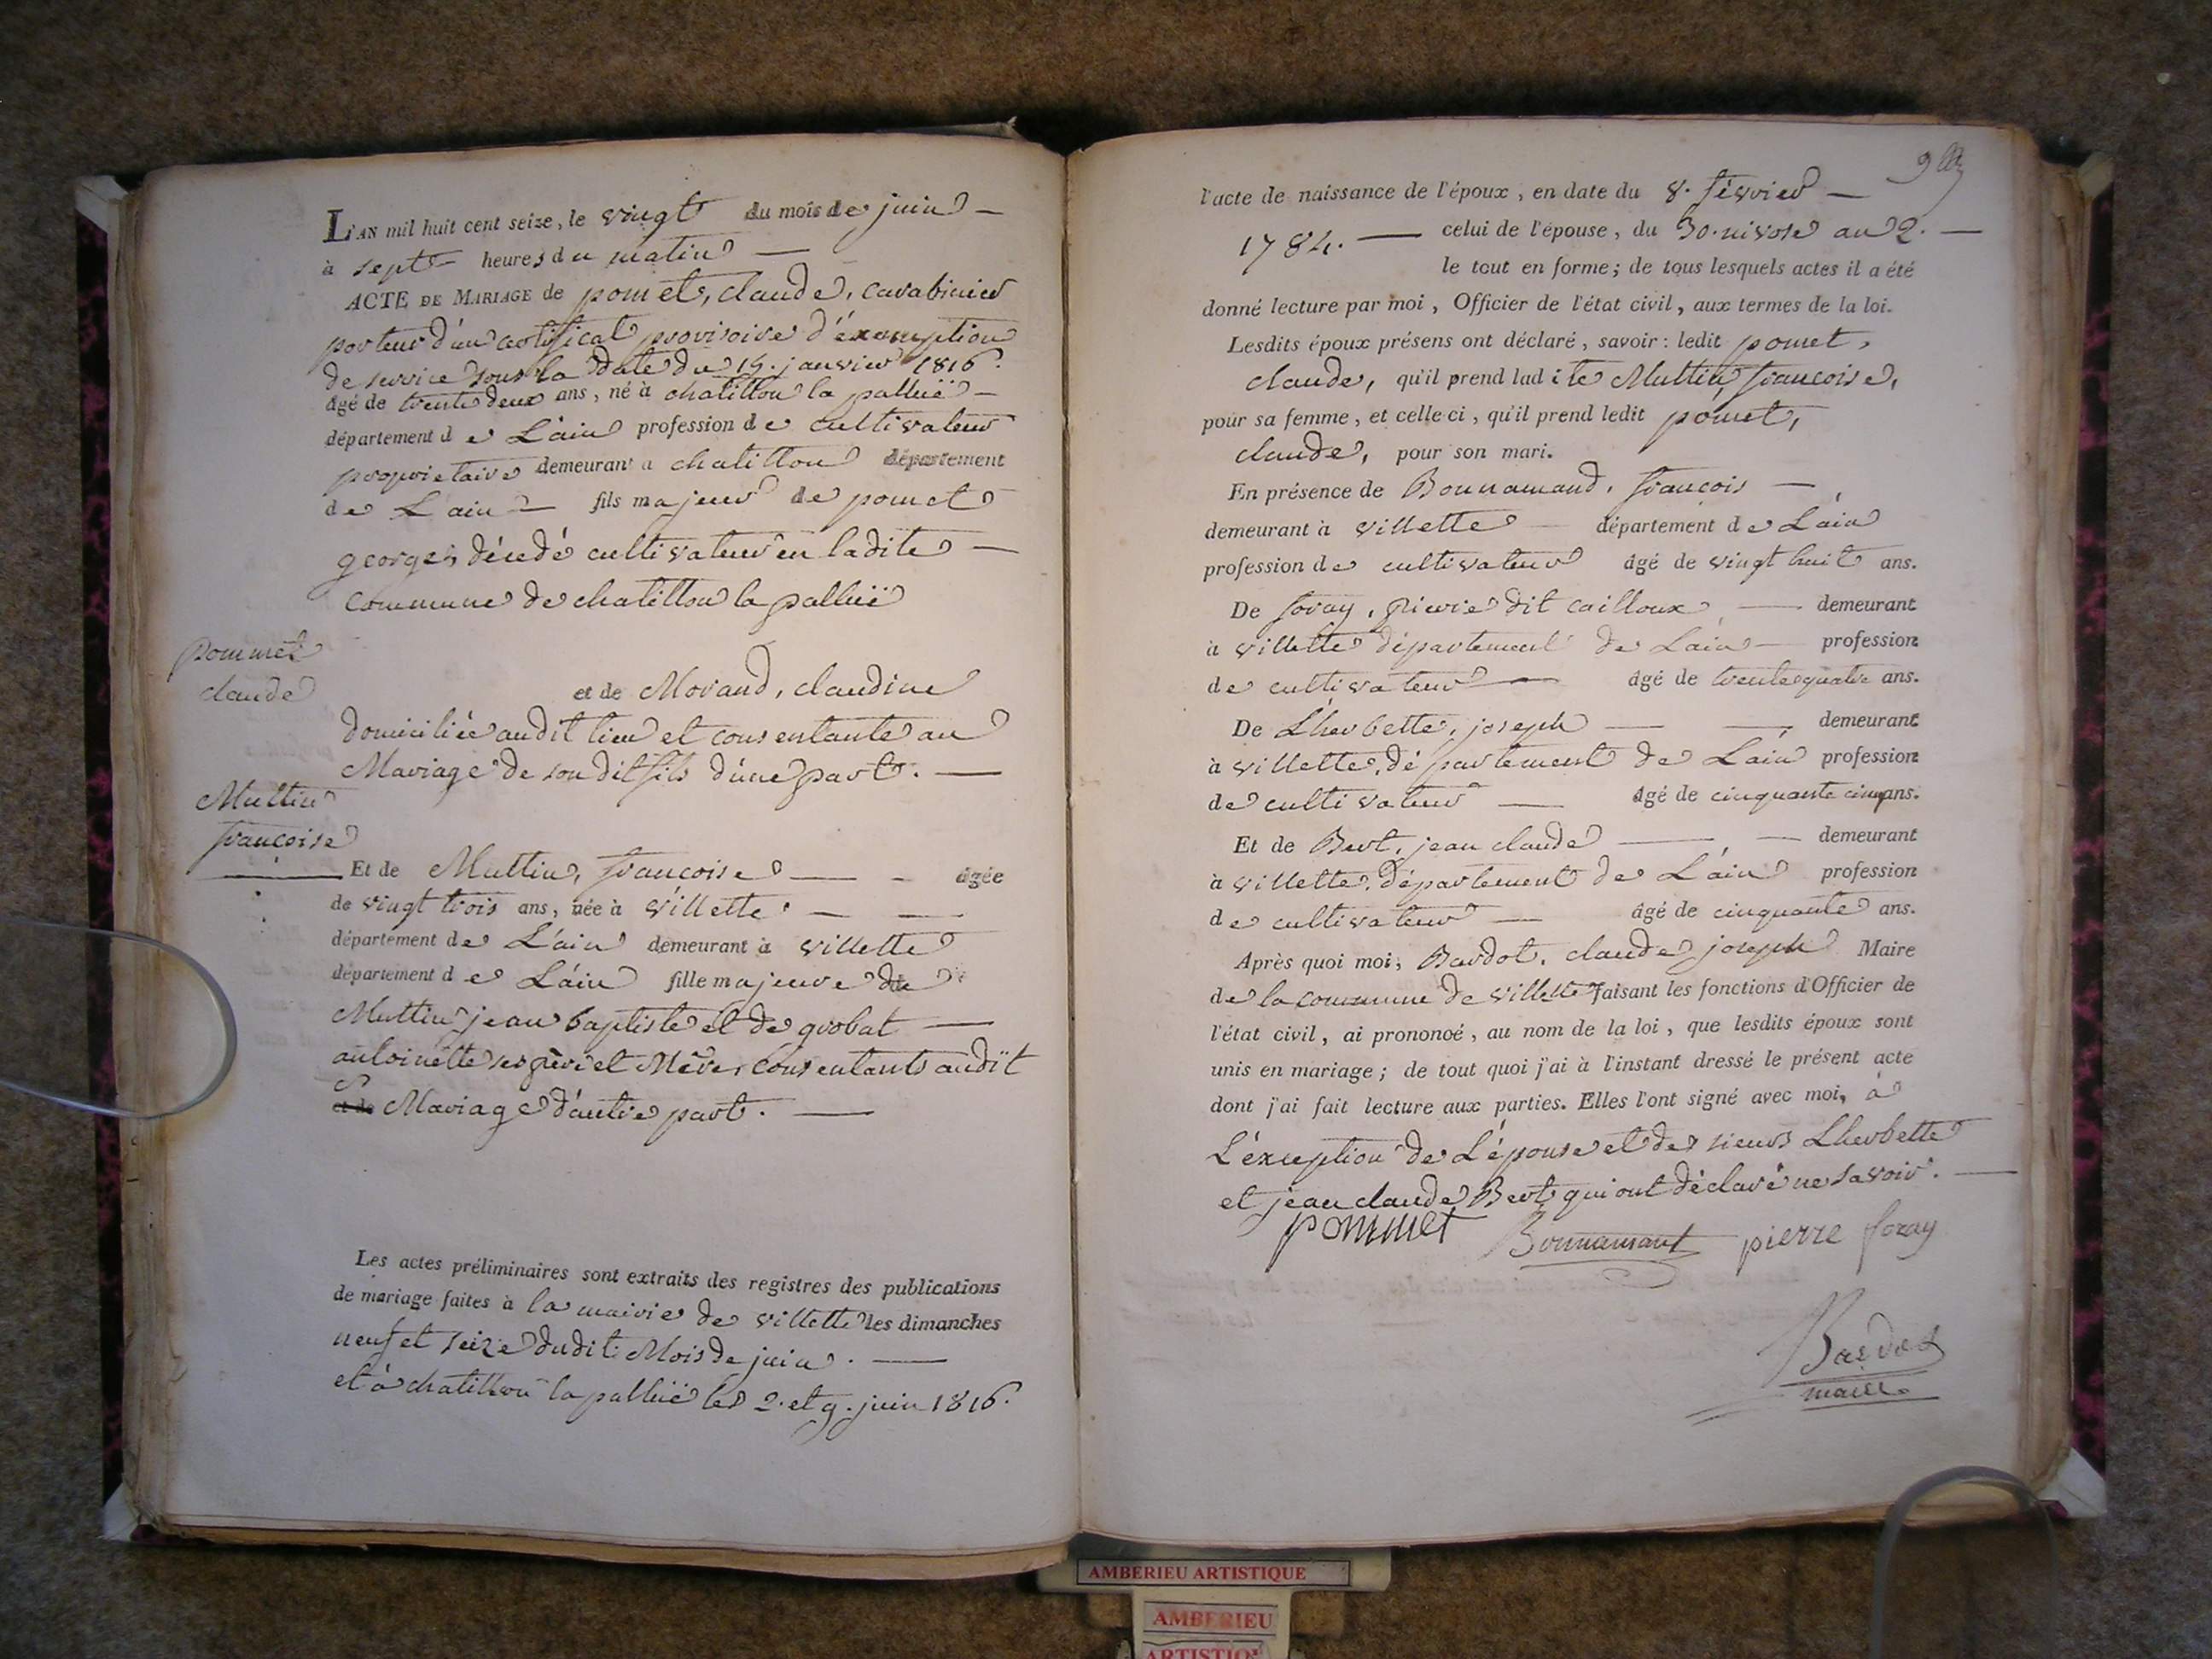 L'AN mil huit cent seize, le vingt du mois de juin —
à sept heures du matin —
ACTE DE MARIAGE de pomet, claude, carabinier
porteur d'un certificat provisoire d'éxemption
de service sous la date du 15. janvier 1816.
âgé de trente deux ans, né à chatillon la palluë —
département de L'ain profession de cultivateur
proprietaire demeurant a chatillon département
de L'ain — fils majeur de pomet
georges décédé cultivateur en ladite —
commune de chatillon la palluë
pommet
claude
et de Morand, claudine
domiciliée audit lieu et consentante au
Mariage de son dit fils d'une part. —
Muttin
francoise
Et de Muttin, francoise — - âgée
de vingt trois ans, née à villette. — —
département de L'ain demeurant à villette
département de L'ain fille majeure de
Muttin jean baptiste et de grobat —
antoinette ses père et Mère, consentants audit
et de Mariage d'autre part. —
Les actes préliminaires sont extraits des registres des publications
de mariage faites à la mairie de villette les dimanches
neuf et seize dudit Mois de juin. —
et à chatillon la palluë les 2. et 9. juin 1816.
l'acte de naissance de l'époux, en date du 8. février —
1784. — celui de l'épouse, du 30. nivose an 2. —
le tout en forme; de tous lesquels actes il a été
donné lecture par moi, Officier de l'état civil, aux termes de la loi.
Lesdits époux présens ont déclaré, savoir: ledit pomet,
claude, qu'il prend ladite Muttin, francoise,
pour sa femme, et celle-ci, qu'il prend ledit pomet,
claude, pour son mari.
En présence de Bonnamand, francois —
demeurant à villette — département de L'ain
profession de cultivateur âgé de vingt huit ans.
De foray, pierre dit cailloux — demeurant
à villette département de Lain — profession
de cultivateur — âgé de trente quatre ans.
De Lherbette, joseph — — demeurant
à villette, département de L'ain profession
de cultivateur — âgé de cinquante cinq ans.
Et de Bert, jean claude — — demeurant
à villette, département de L'ain profession
de cultivateur — âgé de cinquante ans.
Après quoi moi, Bardot, claude joseph Maire
de la commune de villette faisant les fonctions d'Officier de
l'état civil, ai prononcé, au nom de la loi, que lesdits époux sont
unis en mariage; de tout quoi j'ai à l'instant dressé le présent acte
dont j'ai fait lecture aux parties. Elles l'ont signé avec moi, à
L'éxception de L'épouse et des sieurs Lherbette
et jean claude Bert qui ont déclaré ne savoir. —
pommet Bonnamant pierre foray
Bardot
maire
AMBERIEU ARTISTIQUE
AMBERIEU
ARTISTIQUE